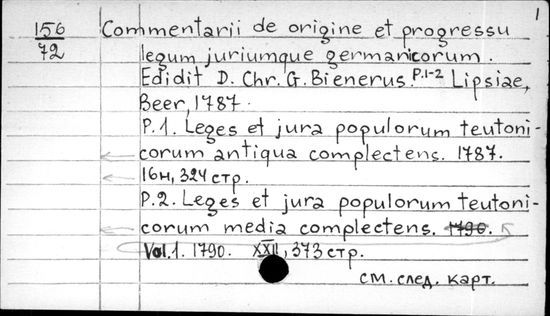 1
156
72
Commentarii de origine et progressu
legum juriumque germanicorum.
Edidit D. Chr. G. Bienerus. P.1-2 Lipsiae,
Beer, 1787.
P.1. Leges et jura populorum teutoni-
corum antiqua complectens. 1787.
16н, 324 стр.
P.2. Leges et jura populorum teutoni-
corum media complectens. 1790.
Vol.1. 1790. XXII, 373 стр.
см. след. карт.